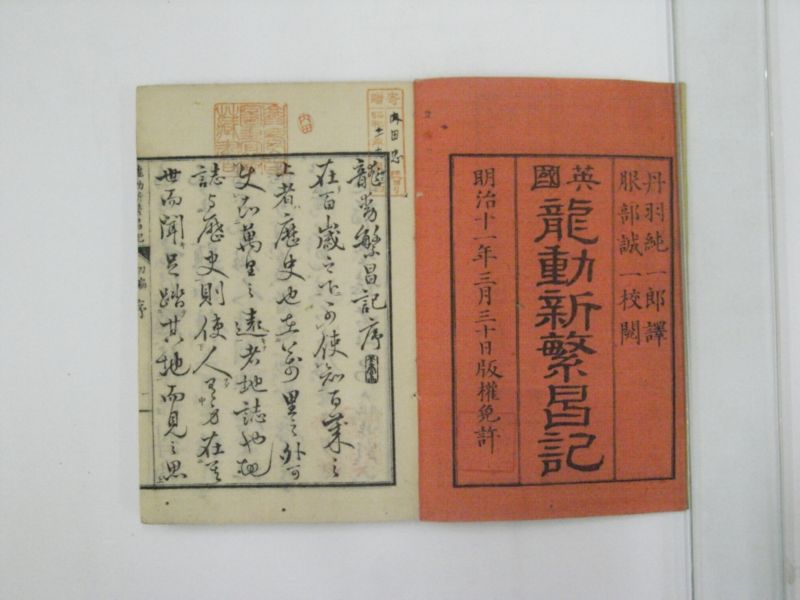 丹羽純一郎譯
服部誠一校閲
英國
龍動新繁昌記
明治十一年三月三十日版權免許
龍動繁昌記序
在百歲之下可使知百之
上者歷史也在萬里之外可
知萬里之遠者地誌也
誌与歷史則使人在其
世而聞足踏其地而見之思
内田